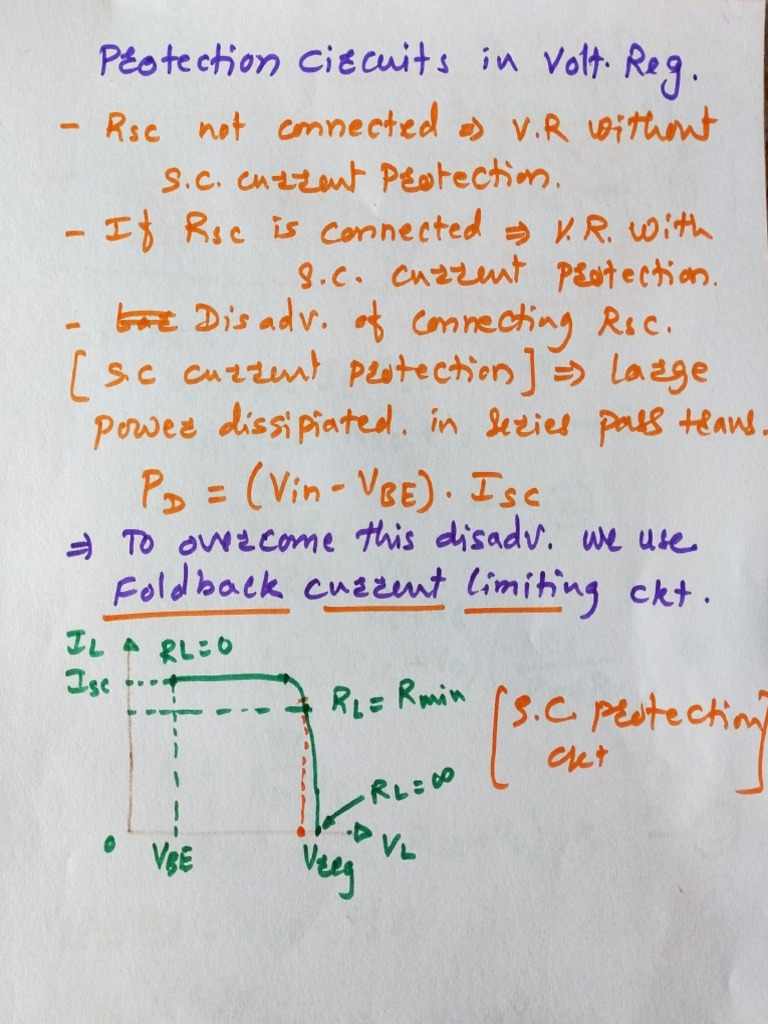 Protection Circuits in Volt. Reg.
- Rsc not connected ⇒ V.R without
S.C. current Protection.
- If Rsc is connected ⇒ V.R. with
S.C. current protection.
- Disadv. of connecting Rsc.
[ S.C current protection ] ⇒ Large
power dissipiated. in series pass trans.
PD = (Vin - VBE) . Isc
⇒ To overcome this disadv. we use
Foldback current limiting ckt.
IL RL=0
Isc
RL = Rmin
[ S.C. protection ]
ckt
RL = ∞
0 VBE Vreg VL